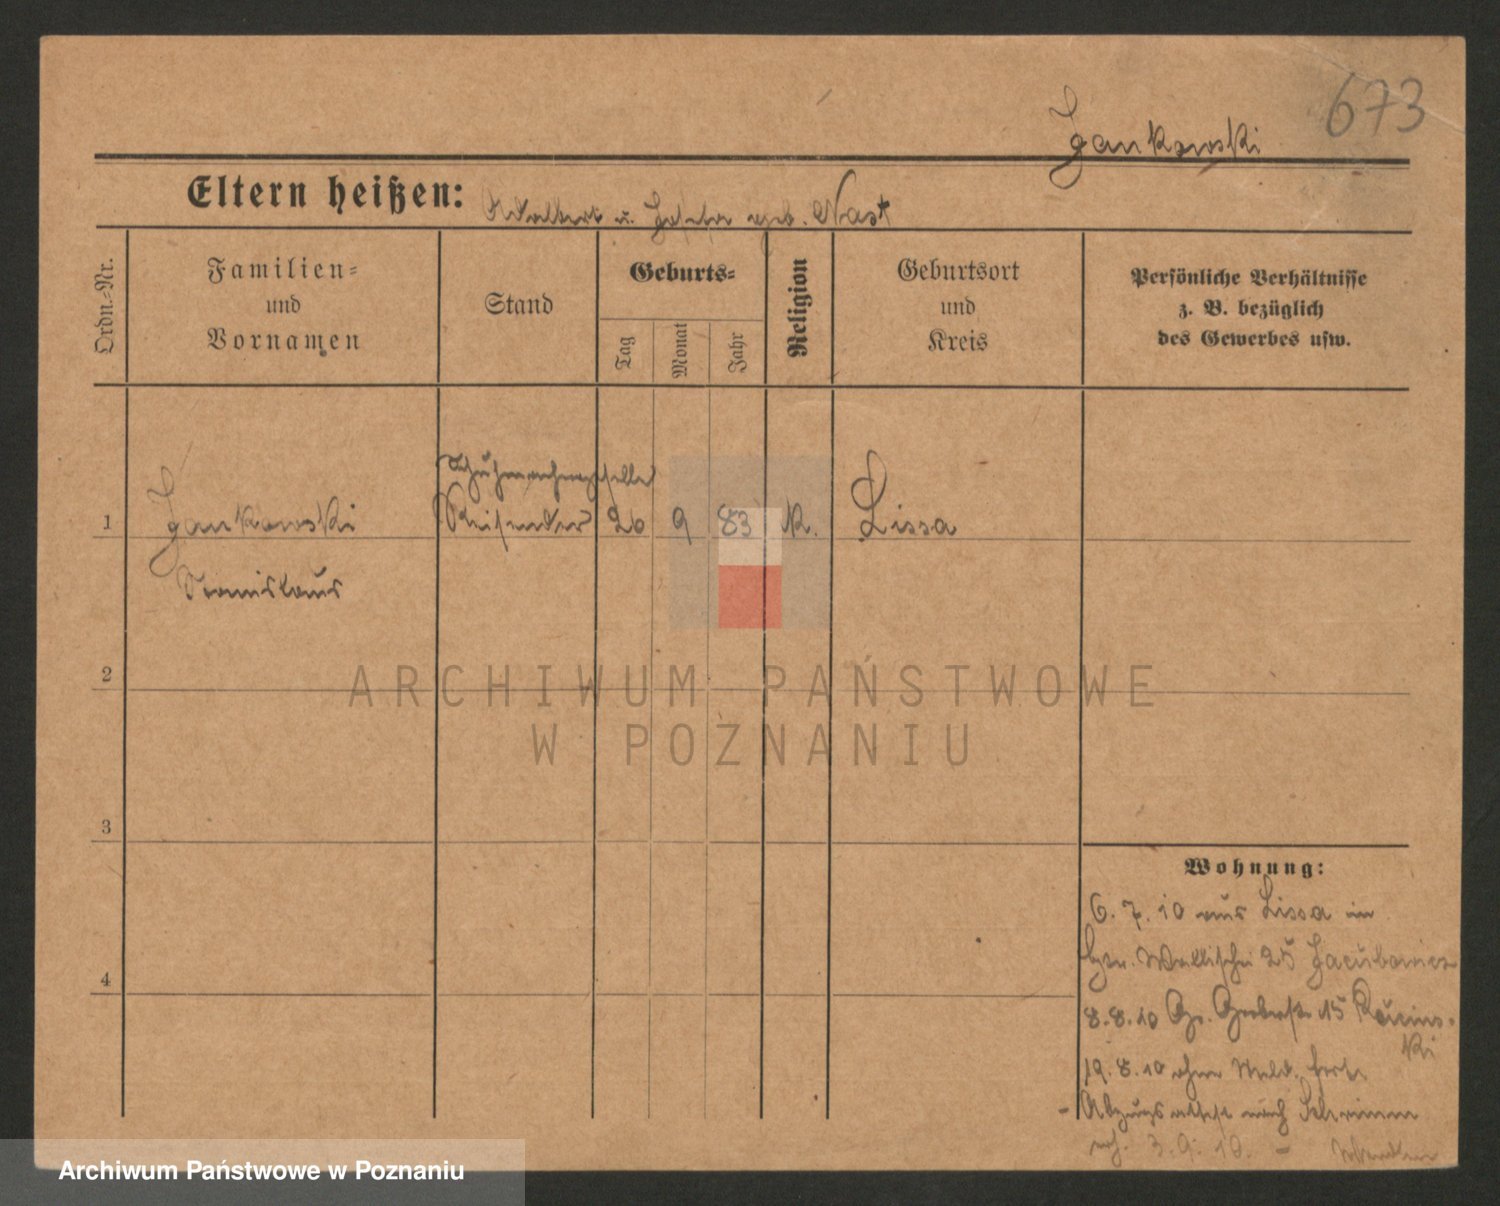 673
Jankowski
Eltern heißen: Adalbert u. Josefa geb. Nast
Ordn.-Nr.
Familien-
und
Vornamen
Stand
Geburts-
Tag
Monat
Jahr
Religion
Geburtsort
und
Kreis
Persönliche Verhältnisse
z. B. bezüglich
des Gewerbes usw.
Schuhmachergeselle
1 Jankowski Reisender 26 9 83 K. Lissa
Stanislaus
2
ARCHIWUM PAŃSTWOWE
W POZNANIU
3
4
Wohnung:
6.7.10 aus Lissa in
Wallischei 25 Jacubowicz
8.8.10 Gr. Gerberstr. 15
ki
19.8.10 ohne Meld. fort.
- Abzugsattest nach Schrimm
3.9.10. -
Archiwum Państwowe w Poznaniu